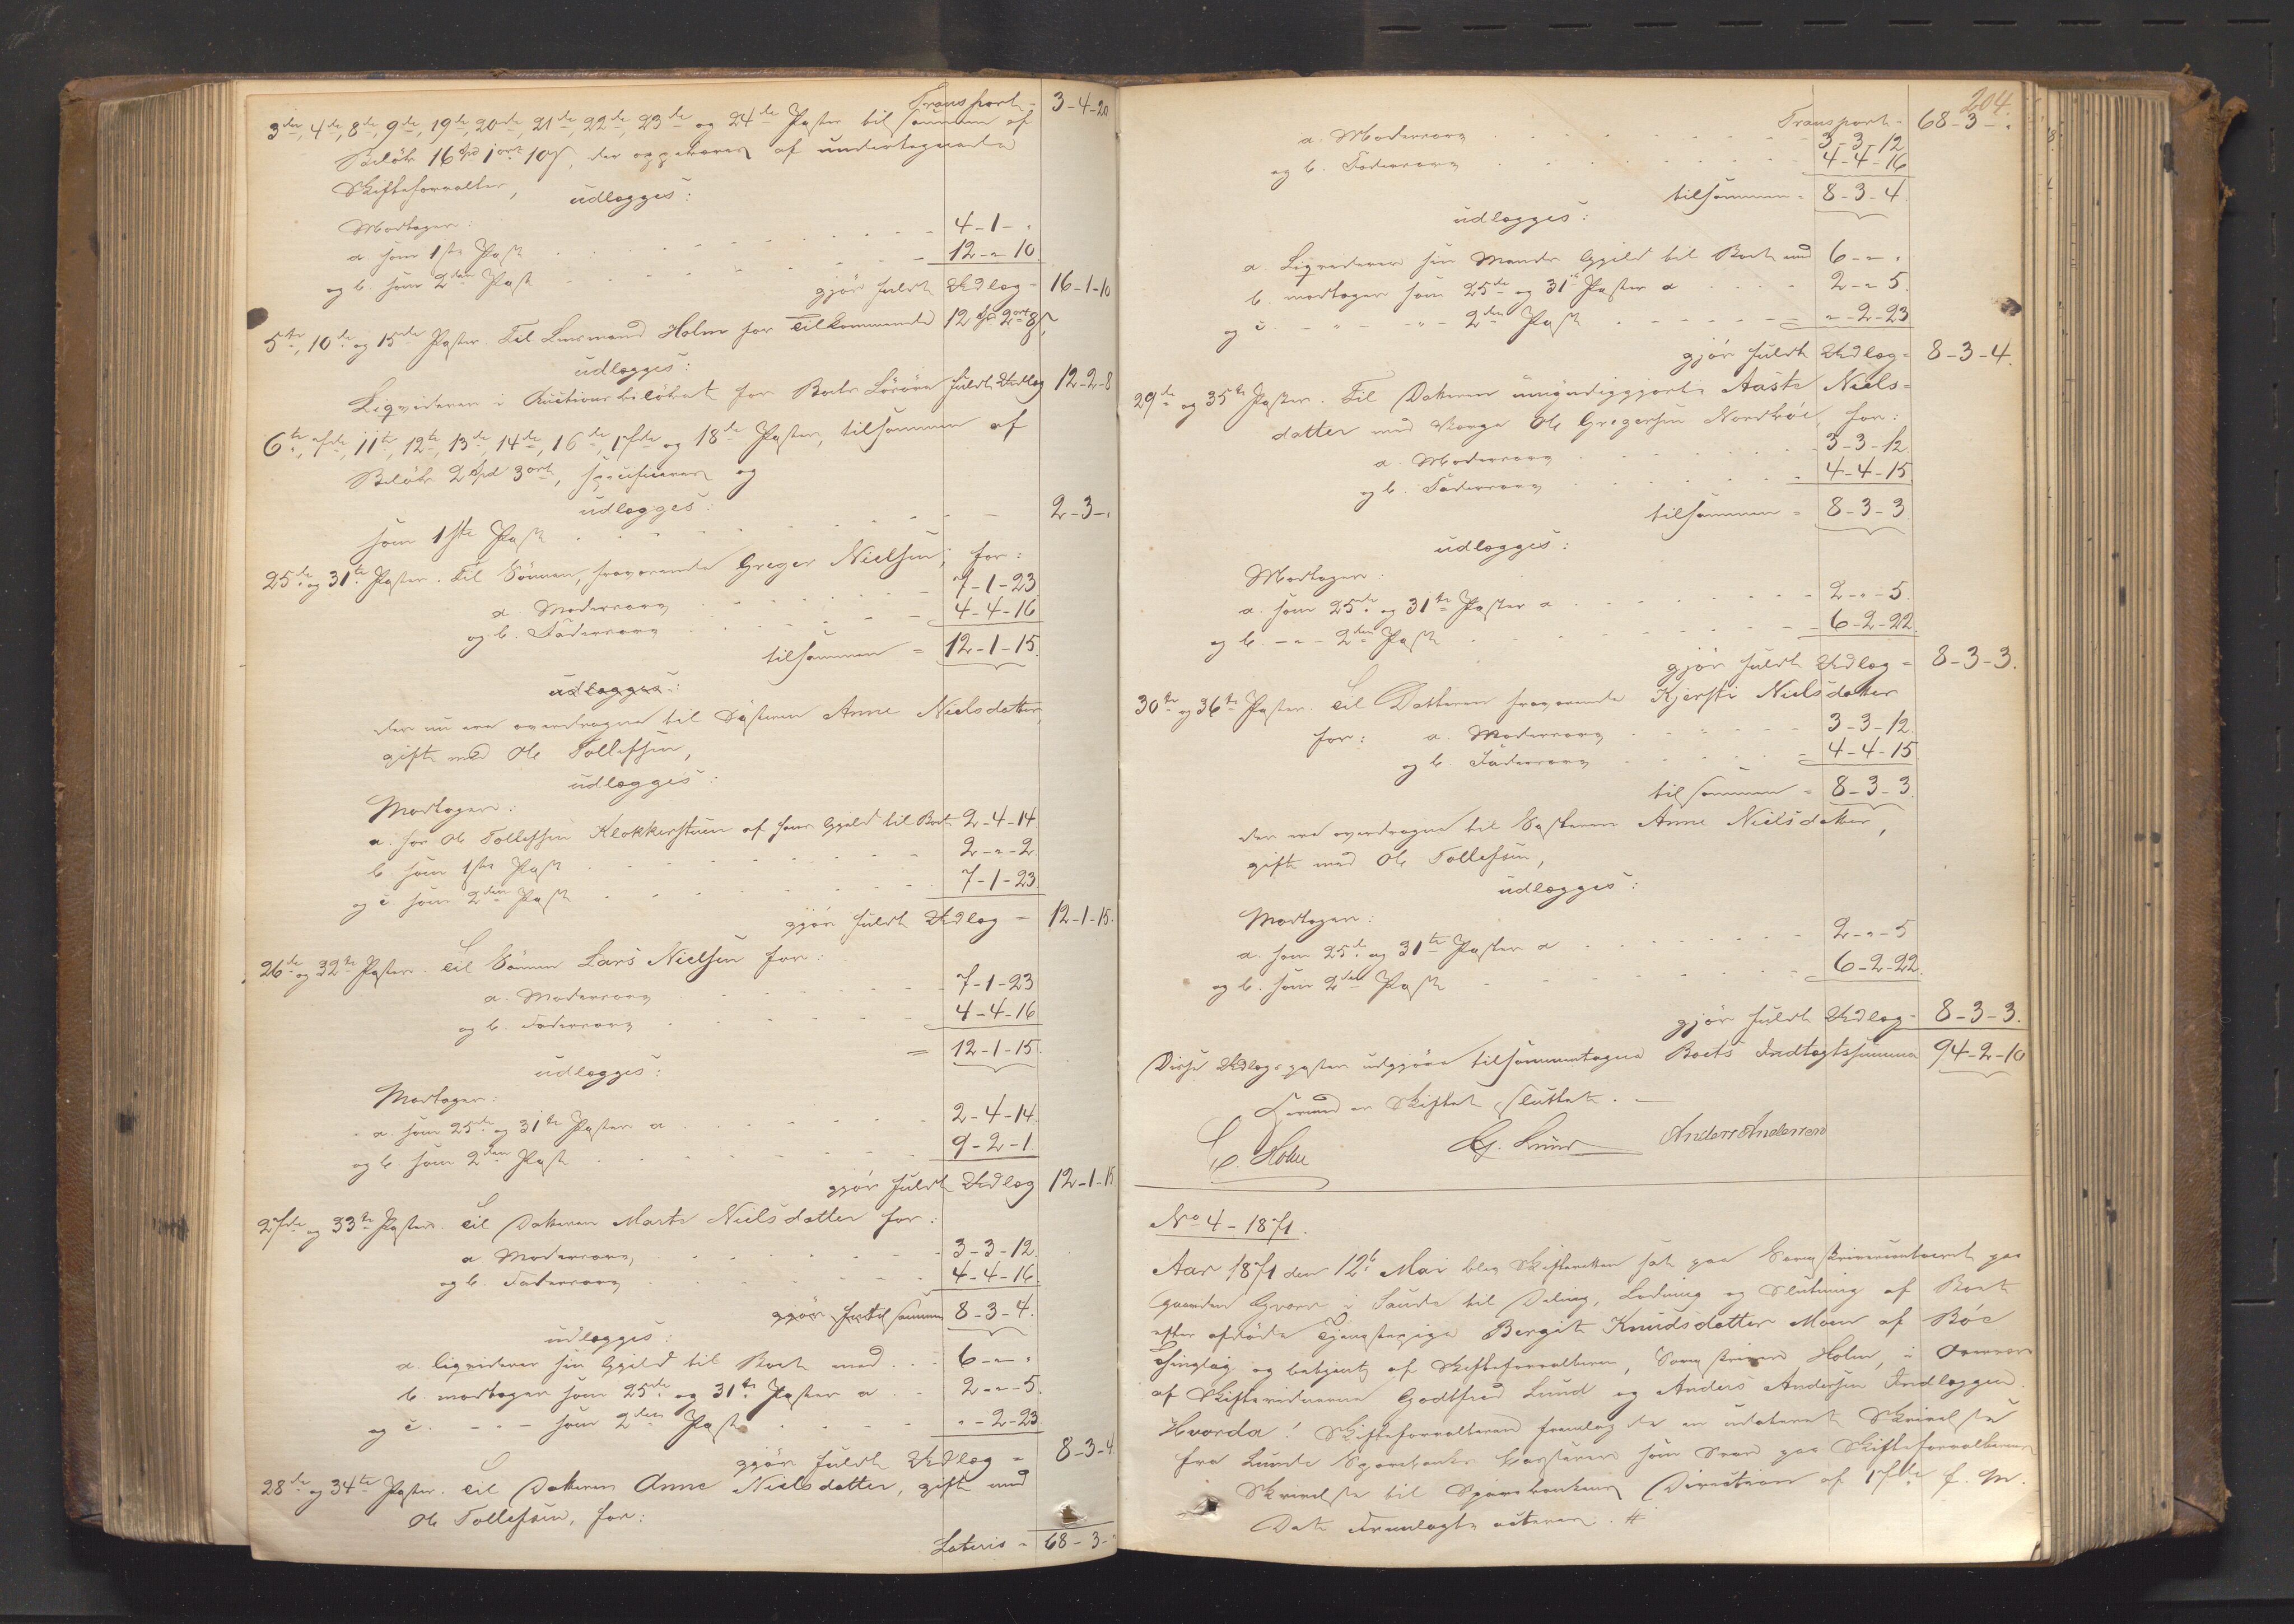 Transport - 3-4-20
3die, 4de, 8de, 9de, 19de, 20de, 21de, 22de, 23de og 24de Poster til sammen af
Beløb 16 Spd 1 ort 10 s, der oppebæres af undertegnede
Skifteforvalter,
udlægges:
Modtager:
a. som 1ste Post - 4-1-"
og b. som 2den Post - 12-"-10
gjør fuldt Udlæg - 16-1-10
5te, 10de og 15de Poster. Til Lensmand Holm for Tilkommende 12 Spd 2 ort 8 s,
udlægges:
Liqviderer i Auctionsbeløbet for Boets Løsøre fuldt Udlæg 12-2-8
6te, 7de, 11te, 12te, 13de, 14de, 16de, 17de og 18de Poster, tilsammen af
Beløb 2 Spd 3 ort, og
udlægges:
som 1ste Post - 2-3-"
25de og 31te Poster. Til Sønnen, fraværende Greger Nielsen, for:
a. Mødrearv 7-1-23
og b. Fædrearv - 4-4-16
tilsammen = 12-1-15.
udlægges:
der nu ere overdragne til Søsteren Anne Nielsdatter,
gift med Ole Tollefsen,
udlægges:
Modtager:
a. hos Ole Tollefsen Klokkerstuen af hans Gjæld til Boet 2-4-14
b. som 1ste Post 2-"-2
og c. som 2den Post 7-1-23
gjør fuldt Udlæg - 12-1-15.
26de og 32te Poster. Til Sønnen Lars Nielsen for:
a. Mødrearv 7-1-23
og b. Fædrearv 4-4-16
= 12-1-15.
udlægges:
Modtager:
a. som 25de og 31te Poster a 2-4-14
og b. som 2den Post 9-2-1
gjør fuldt Udlæg 12-1-15
27de og 33te Poster. Til Datteren Marte Nielsdatter for:
a. Mødrearv 3-3-12.
og b. Fædrearv 4-4-16.
gjør tilsammen 8-3-4.
udlægges:
a. liqviderer sin Gjæld til Boet med 6-"-"
b. modtager som 25de og 31te Poster a 2-"-5.
og c. - " - som 2den Post "-2-23.
gjør fuldt Udlæg = 8-3-4
28de og 34te Poster. Til Datteren Anne Nielsdatter, gift med
Ole Tollefsen, for:
Lateris - 68-3-"
204.
Transport - 68-3-"
a. Mødrearv 3-3-12
og b. Fædrearv 4-4-16
tilsammen = 8-3-4.
udlægges:
a. Liqviderer sin Mands Gjæld til Boet med 6-"-"
b. modtager som 25de og 31te Poster a 2-"-5.
og c. - " - " - 2den Post "-2-23
gjør fuldt Udlæg = 8-3-4.
29de og 35te Poster. Til Datteren umyndiggjorte Aaste Niels-
datter med Værge Ole Gregersen Nordbøe, for:
a. Mødrearv 3-3-12
og b. Fædrearv 4-4-15
tilsammen = 8-3-3
udlægges:
Modtager:
a. som 25de og 31te Poster a 2-"-5.
og b. - " - 2den Post 6-2-22.
gjør fuldt Udlæg = 8-3-3.
30te og 36te Poster. Til Datteren fraværende Kjersti Nielsdatter
for: a. Mødrearv 3-3-12.
og b. Fædrearv 4-4-15
tilsammen = 8-3-3.
der ere overdragne til Søsteren Anne Nielsdatter,
gift med Ole Tollefsen,
udlægges:
Modtager:
a. som 25de og 31te Poster a 2-"-5
og b. som 2den Post 6-2-22.
gjør fuldt Udlæg - 8-3-3.
Disse Udlægsposter udgjøre tilsammentagne Boets Indtægtssumma 94-2-10
Hermed er Skiftet sluttet. -
C. Holm G. Lund Anders Andersen
No 4 - 1871.
Aar 1871 den 12te Mai blev Skifteretten sat paa Sorenskrivercontoiret paa
Gaarden Gvarv i Saude til Deling, Lodning og Slutning af Boet
efter afdøde Tjenestepige Bergit Knudsdatter Moen af Bøe
Thinglag og betjent af Skifteforvalteren, Sorenskriver Holm, i Overvær
af Skiftevidnerne Godtfred Lund og Anders Andersen Indlæggen.
Hvorda! Skifteforvalteren fremlagde en udateret Skrivelse
fra Lunde Sparebanks Kasserer som Svar paa Skifteforvalterens
Skrivelse til Sparebankens Direction af 17de f. M.
Det Fremlagte acteres. #